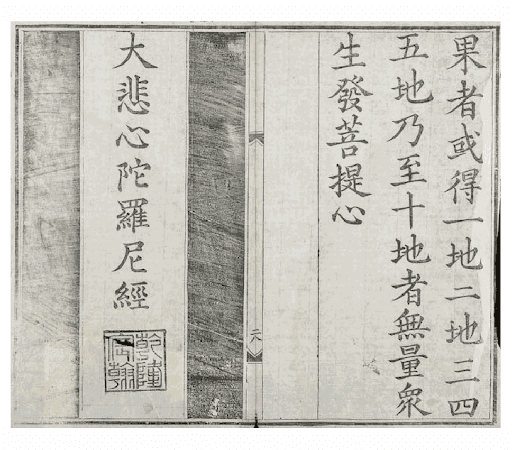 果者或得一地二地三四
五地乃至十地者無量衆
生發菩提心
大悲心陀羅尼經
乾隆
宸翰